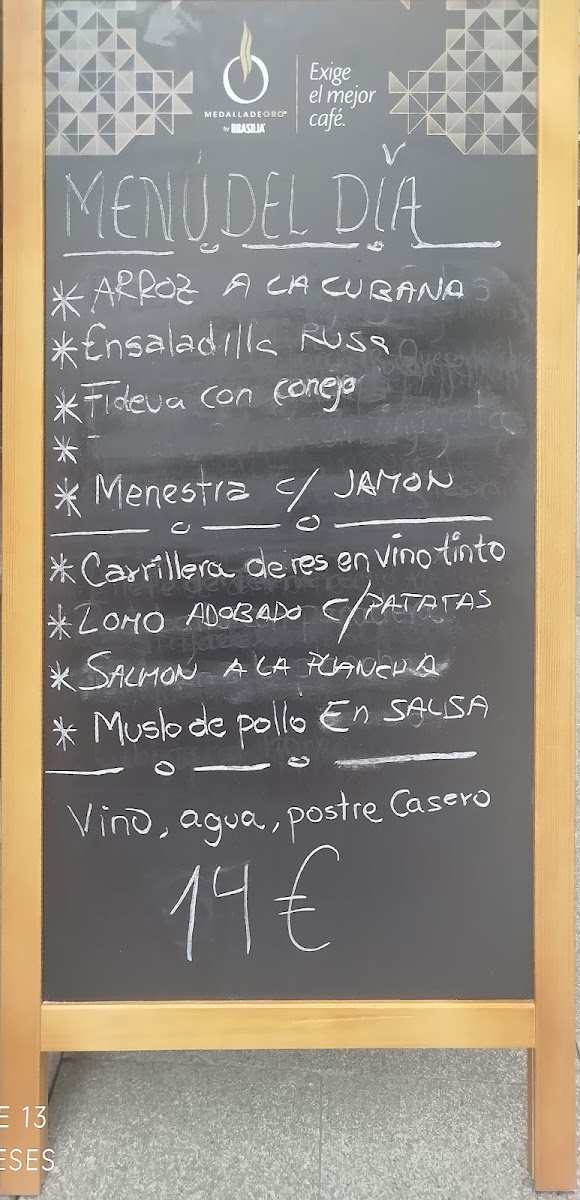 MEDALLADEORO
by BRASILIA
Exige
el mejor
café.
MENÚ DEL DÍA
* ARROZ A LA CUBANA
* Ensaladilla RUSa
* Fideua con conejo
*
* Menestra c/ JAMON
* Carrillera de res en vino tinto
* LOMO ADOBADO C/PATATAS
* SALMON A LA PLANCHA
* Muslo de pollo En SALSA
Vino, agua, postre Casero
14 €
E 13
ESES